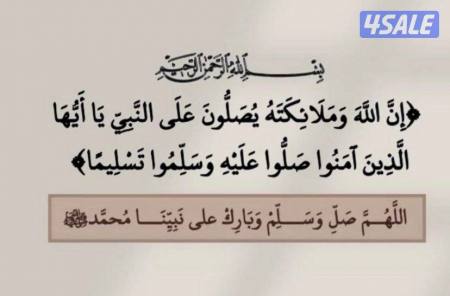 4SALE
بسم الله الرحمن الرحيم
﴿إِنَّ اللَّهَ وَمَلَائِكَتَهُ يُصَلُّونَ عَلَى النَّبِيِّ يَا أَيُّهَا
الَّذِينَ آمَنُوا صَلُّوا عَلَيْهِ وَسَلِّمُوا تَسْلِيمًا﴾
اللَّهُمَّ صَلِّ وَسَلِّمْ وَبَارِكْ على نَبِيِّنَا مُحمَّد ﷺ